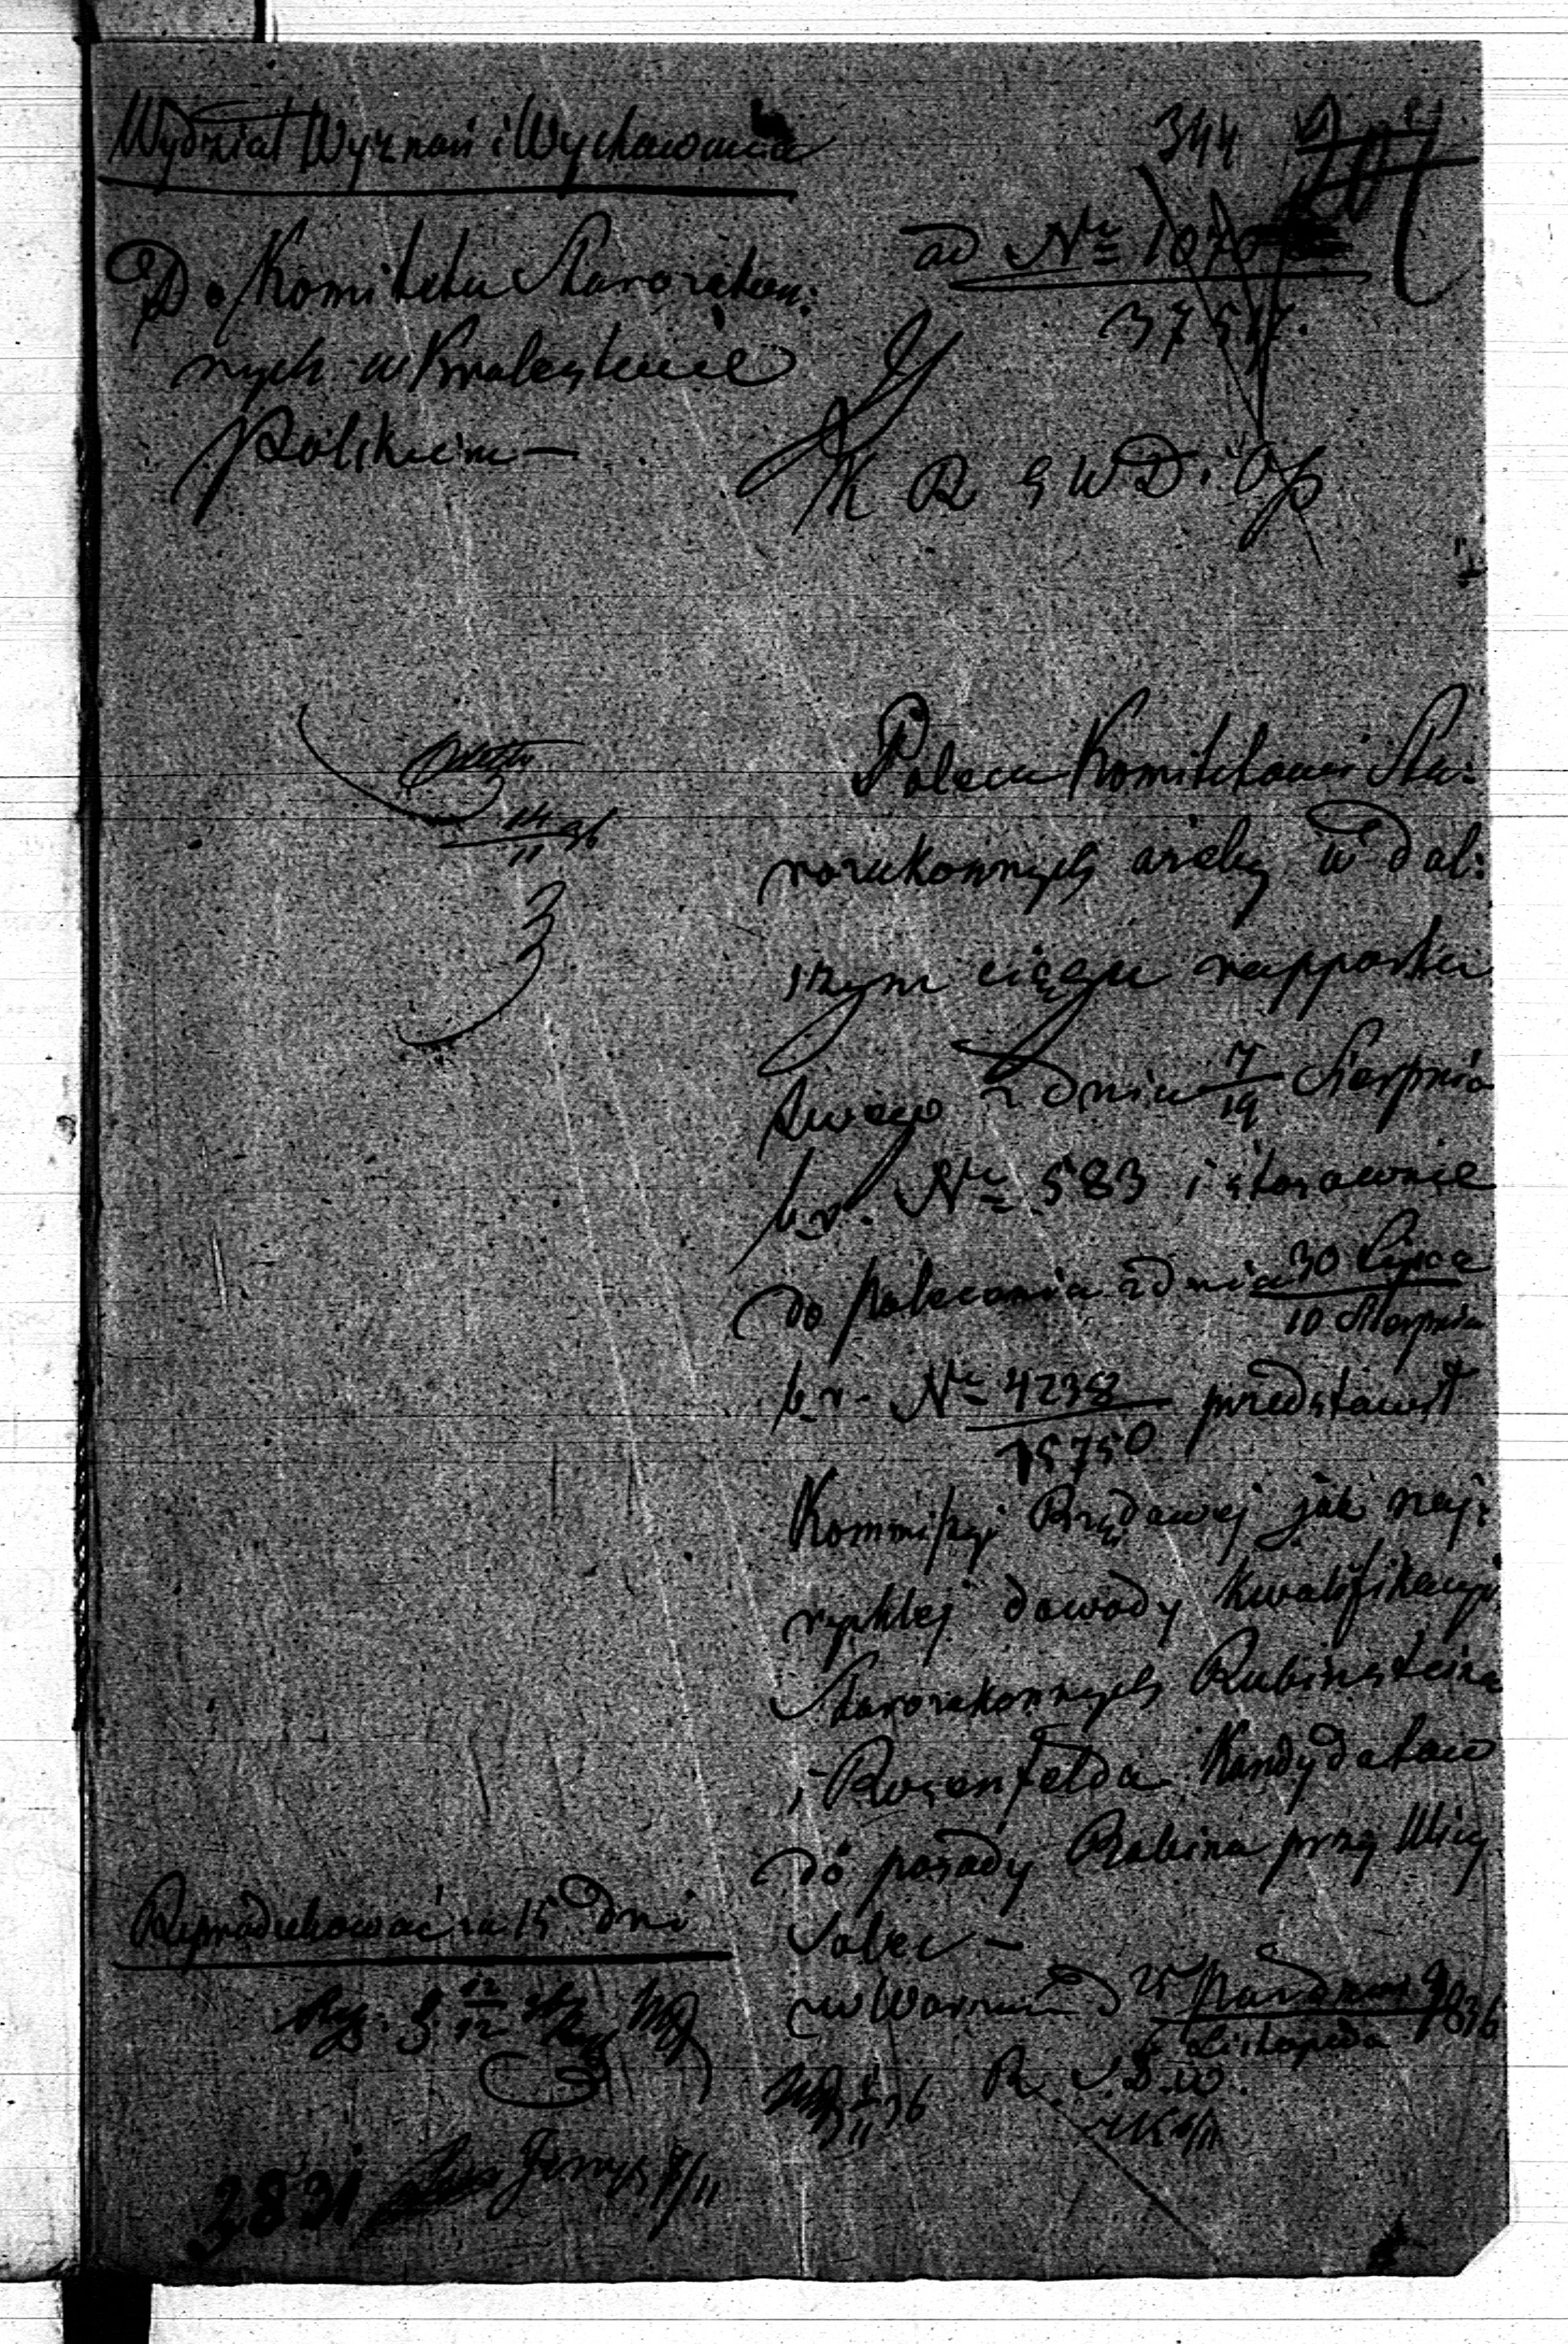 Wydział Wyznań i Wychowania
344
Do Komitetu Starozakon:
nych w Królestwie
Polskiem —
ad Nr
37517.
K R S W D i OP
Poleca Komitetowi Sta:
rozakonnych ażeby w dal:
szym ciągu rapportu
swego z dnia 7/19 Sierpnia
b. r. Nr 583 i stosownie
do polecenia z dnia 30 Lipca / 10 Sierpnia
b. r. Nr 4238/15750 przedstawił
Kommissyi Rządowej jak naj:
rychlej dowody kwalifikacyi
Starozakonnych Rubinsteina
i Rosenfelda Kandydatów
do posady Rabina przy Ulicy
Solec —
w Warszawie d 25 Pazdzier / 6 Listopada 1836
R. S. D. W.
Reprodukować za 15 dni
14/11 36
2831